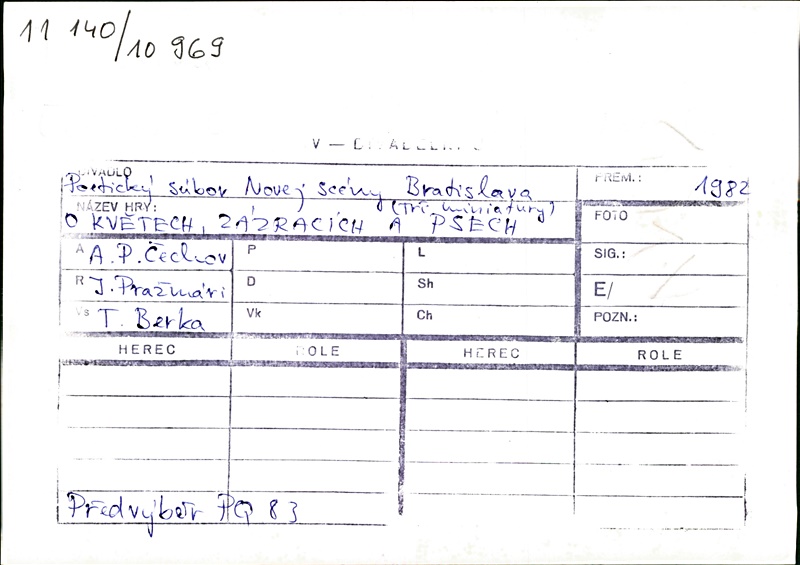 11 140/10 969
DIVADLO PREM.:
Poetický súbor Novej scény Bratislava 1982
NÁZEV HRY: (Tri miniatury) FOTO
O KVĚTECH, ZÁZRACÍCH A PSECH
A A.P. Čechov P L SIG.:
R J. Pražmári D Sh E/
Vs T. Berka Vk Ch POZN.:
HEREC ROLE HEREC ROLE
Předvýběr PQ 83